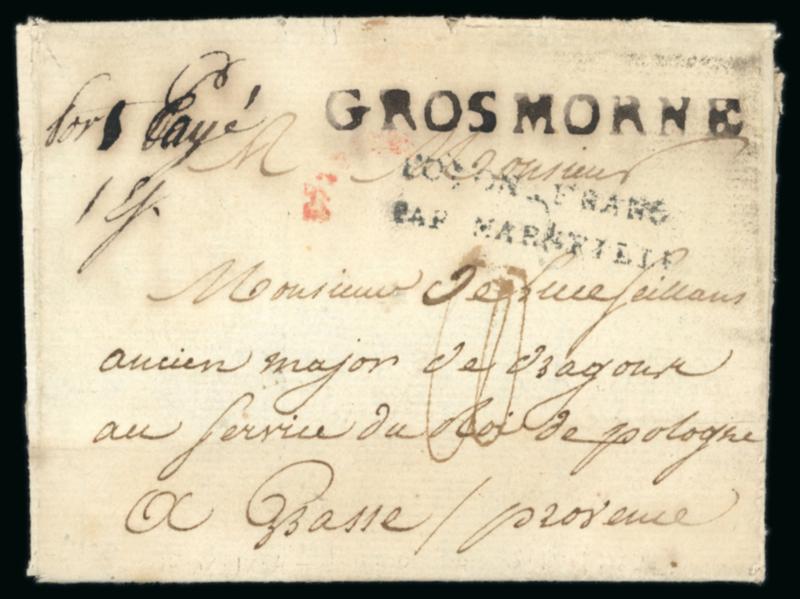 Port Payé
GROSMORNE
M Monsieur
COLON. FRANC
PAR MARSEILLE
Monsieur de
ancien major de dragons
au service du Roi de pologne
a Grasse / provence